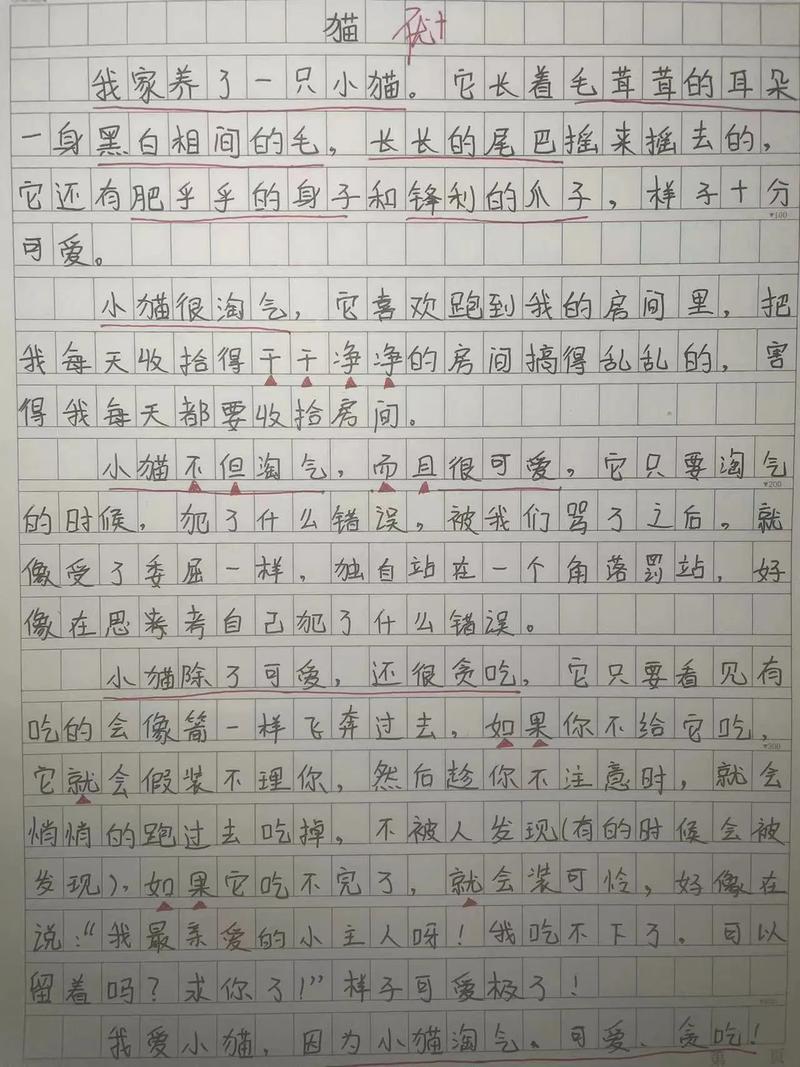 猫 优+
我家养了一只小猫。它长着毛茸茸的耳朵
一身黑白相间的毛，长长的尾巴摇来摇去的，
它还有肥乎乎的身子和锋利的爪子，样子十分
▼100
可爱。
小猫很淘气，它喜欢跑到我的房间里，把
我每天收拾得干干净净的房间搞得乱乱的，害
得我每天都要收拾房间。
小猫不但淘气，而且很可爱，它只要淘气
▼200
的时候，犯了什么错误，被我们骂了之后，就
像受了委屈一样，独自站在一个角落罚站，好
像在思考考自己犯了什么错误。
小猫除了可爱，还很贪吃，它只要看见有
吃的会像箭一样飞奔过去，如果你不给它吃，
▼300
它就会假装不理你，然后趁你不注意时，就会
悄悄的跑过去吃掉，不被人发现（有的时候会被
发现），如果它吃不完了，就会装可怜，好像在
说：“我最亲爱的小主人呀！我吃不下了。可以
留着吗？求你了！”样子可爱极了！
我爱小猫，因为小猫淘气。可爱、贪吃！
第 页